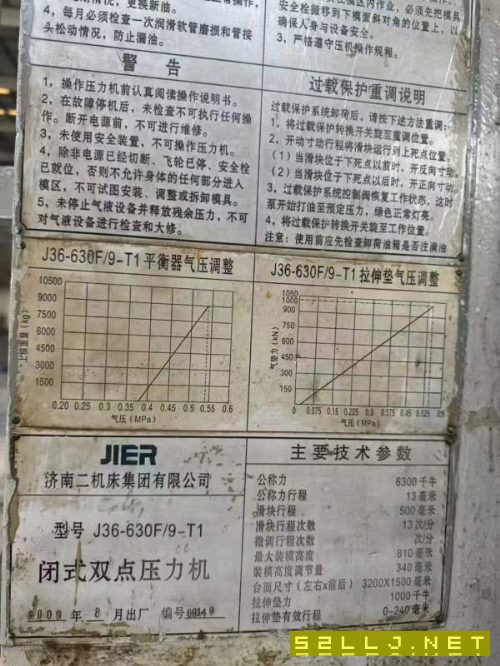 情况，更换新油。
4，每月必须检查一次润滑软管磨损和管接
头松动情况，防止漏油。
在模区内作业，必须先把模具
安全栓搬到下模面斜对角的位置上，以
确保人身与设备安全。
3，严格遵守压机操作规程。
警 告
1，操作压力机前认真阅读操作说明书。
2，在故障停机后，未检查不可执行任何操
作。断开电源前，不可进行维修。
3，未使用安全装置，不可操作压力机。
4，除非电源已经切断、飞轮已停、安全栓
已就位，否则不允许身体的任何部分进入
模区，不可试图安装、调整或拆卸模具。
5，未停止气液设备并释放残余压力，不可
对气液设备进行检查和大修。
过载保护重调说明
过载保护系统卸荷后，请按下述方法重调：
1，将过载保护转换开关旋至重调位置。
2，开动寸动行程将滑块运行到上死点位置。
（1）当滑块位于下死点以前时，开反向寸动。
（2）当滑块位于下死点以后时，开正向寸动。
3，过载保护系统控制阀恢复工作状态，这时
泵开始打油至预定压力，绿色正常灯亮。
4，将过载保护转换开关旋至工作位置。
注意：使用前应先检查卸荷油箱是否注满油
J36-630F/9-T1平衡器气压调整
10500
9000
7500
6000
4500
3000
1500
上模重量(kg)
0.20 0.25 0.30 0.35 0.40 0.45 0.50 0.55 0.60
气压(MPa)
J36-630F/9-T1拉伸垫气压调整
1050
1000
900
750
600
450
300
150
气垫力(kN)
0 0.075 0.15 0.225 0.3 0.375 0.45 0.525 0.6
气压(MPa)
JIER
济南二机床集团有限公司
型号 J36-630F/9-T1
闭式双点压力机
2009 年 8 月出厂 编号 09149
主要技术参数
公称力 6300 千牛
公称力行程 13 毫米
滑块行程 500 毫米
滑块行程次数 13 次/分
微调行程次数 次/分
最大装模高度 810 毫米
装模高度调节量 340 毫米
台面尺寸（左右x前后） 3200X1500 毫米
拉伸垫力 1000 千牛
拉伸垫有效行程 0-240 毫米
52LLJ.NET